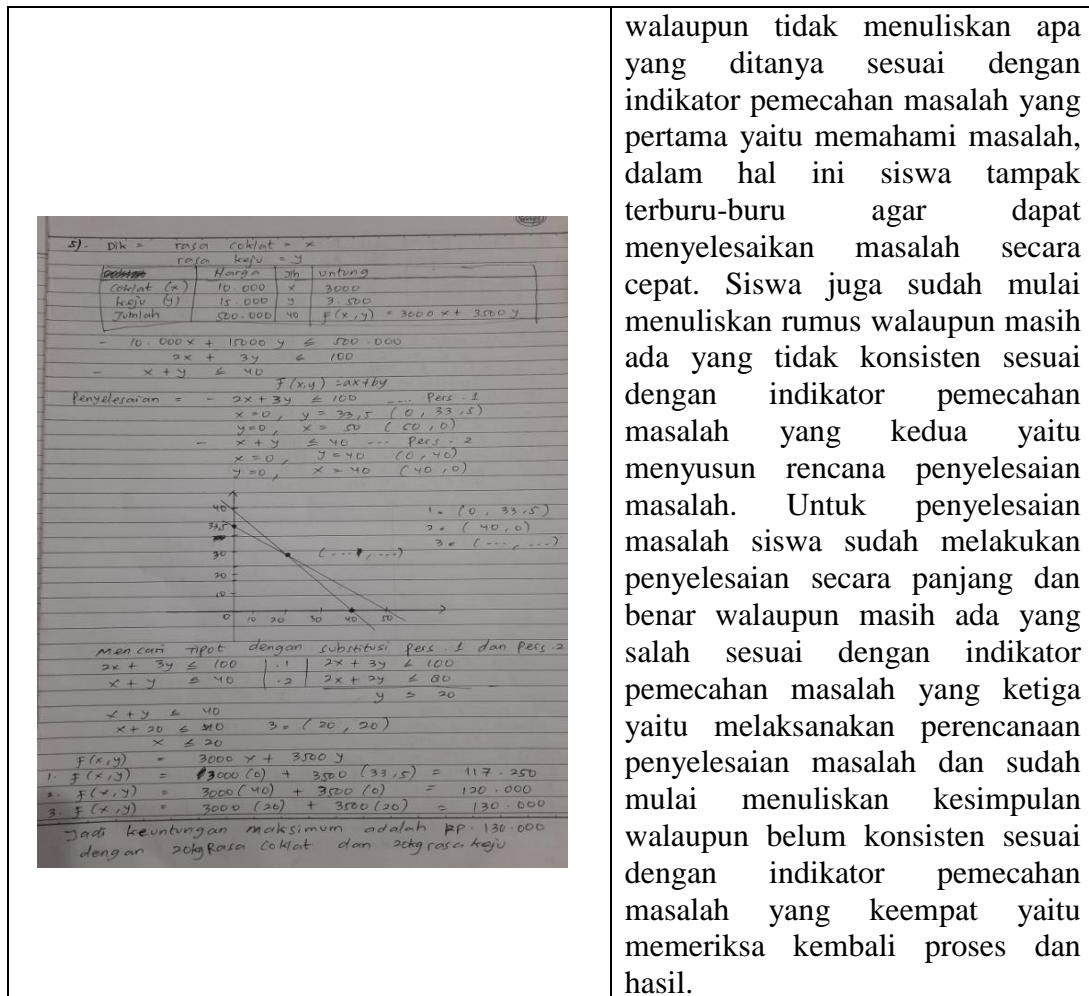 5). Dik = rasa coklat = x
rasa keju = y
Harga Jlh untung
Coklat (x) 10.000 x 3000
keju (y) 15.000 y 3.500
Jumlah 500.000 40 f(x,y) = 3000x + 3500y
- 10.000x + 15000y ≤ 500.000
2x + 3y ≤ 100
- x + y ≤ 40
F(x,y) = ax+by
Penyelesaian = - 2x + 3y ≤ 100 .... Pers. 1
x=0, y = 33,5 (0, 33,5)
y=0, x = 50 (50,0)
- x + y ≤ 40 --- Pers. 2
x=0, y=40 (0,40)
y=0, x = 40 (40,0)
40
33,5
30
20
10
0 10 20 30 40 50
(----, ----)
1. (0, 33,5)
2. (40,0)
3. (----, ----)
Mencari Tipot dengan substitusi Pers. 1 dan Pers. 2
2x + 3y ≤ 100 | .1 | 2x + 3y ≤ 100
x + y ≤ 40 | .2 | 2x + 2y ≤ 80
y ≤ 20
x + y ≤ 40
x + 20 ≤ 40 3 = (20, 20)
x ≤ 20
f(x,y) = 3000x + 3500y
1. f(x,y) = 3000(0) + 3500(33,5) = 117.250
2. f(x,y) = 3000(40) + 3500(0) = 120.000
3. f(x,y) = 3000(20) + 3500(20) = 130.000
Jadi keuntungan maksimum adalah RP. 130.000
dengan 20kg Rasa Coklat dan 20kg rasa keju
walaupun tidak menuliskan apa
yang ditanya sesuai dengan
indikator pemecahan masalah yang
pertama yaitu memahami masalah,
dalam hal ini siswa tampak
terburu-buru agar dapat
menyelesaikan masalah secara
cepat. Siswa juga sudah mulai
menuliskan rumus walaupun masih
ada yang tidak konsisten sesuai
dengan indikator pemecahan
masalah yang kedua yaitu
menyusun rencana penyelesaian
masalah. Untuk penyelesaian
masalah siswa sudah melakukan
penyelesaian secara panjang dan
benar walaupun masih ada yang
salah sesuai dengan indikator
pemecahan masalah yang ketiga
yaitu melaksanakan perencanaan
penyelesaian masalah dan sudah
mulai menuliskan kesimpulan
walaupun belum konsisten sesuai
dengan indikator pemecahan
masalah yang keempat yaitu
memeriksa kembali proses dan
hasil.